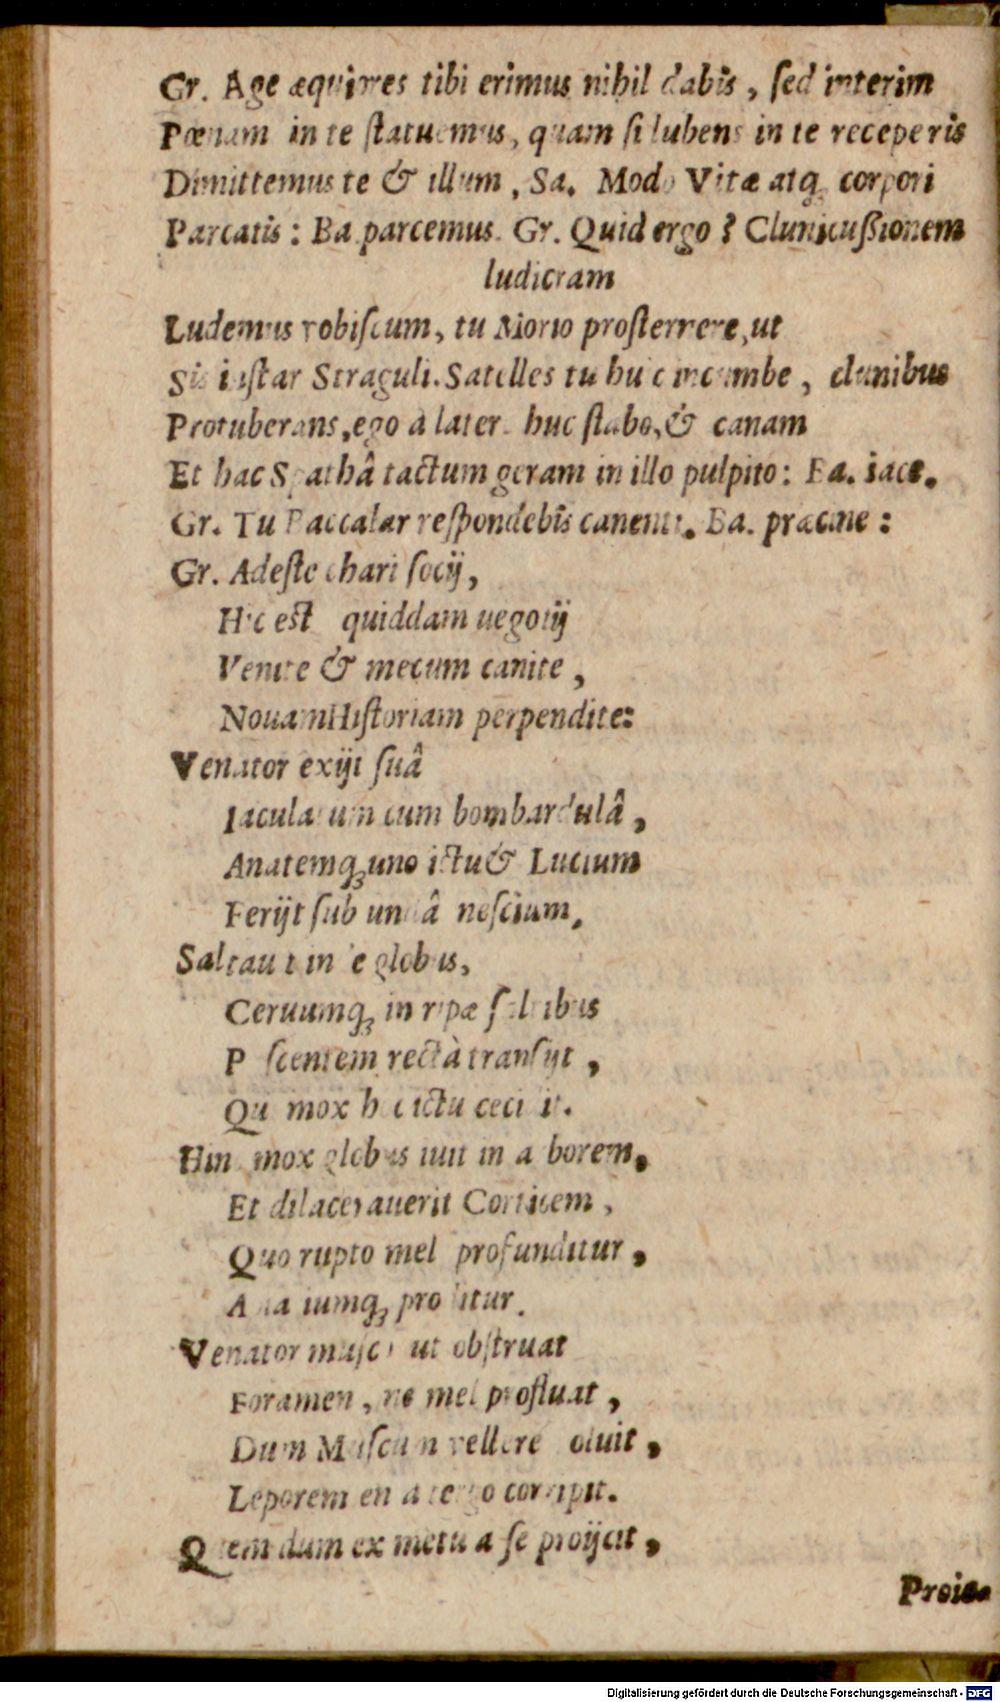 Gr. Age æquiores tibi erimus nihil dabis, ſed interim
Pœnam in te ſtatuemus, quam ſi lubens in te receperis
Dimittemus te & illum, Sa. Modo Vitæ atq; corpori
Parcatis: Ba parcemus. Gr. Quid ergo? Clunicuſſionem
ludicram
Ludemus vobiſcum, tu Morio proſternere, ut
Sis inſtar Straguli. Satelles tu huic incumbe, clunibus
Protuberans, ego à latere huc ſtabo, & canam
Et hac Spathâ tactum geram in illo pulpito: Ba. iace.
Gr. Tu Baccalar reſpondebis canenti. Ba. præcine:
Gr. Adeſte chari ſocij,
Hic est quiddam negotij
Venite & mecum canite,
Nouam Hiſtoriam perpendite:
Venator exijt ſuâ
Iaculatum cum bombardulâ,
Anatemq; uno ictu & Lucium
Ferijt ſub undâ neſcium.
Saltauit inde globus,
Ceruumq; in ripæ
Paſcentem rectà tranſijt,
Qui mox hoc ictu cecidit.
Hinc mox globus iuit in arborem,
Et dilacerauerit Corticem,
Quo rupto mel profunditur,
iumq; proditur.
Venator muſco ut obſtruat
Foramen, ne mel profluat,
Dum Muſcum vellere voluit,
Leporem en a tergo corripit.
Quem dum ex metu a ſe proijcit,
Proie-
Digitalisierung gefördert durch die Deutsche Forschungsgemeinschaft - DFG